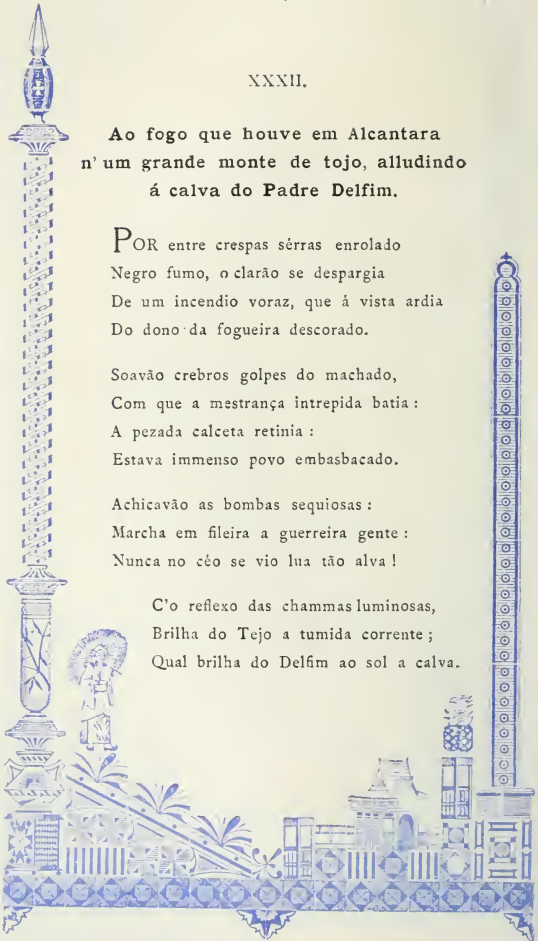 XXXII.
Ao fogo que houve em Alcantara
n' um grande monte de tojo, alludindo
á calva do Padre Delfim.
POR entre crespas sérras enrolado
Negro fumo, o clarão se despargia
De um incendio voraz, que á vista ardia
Do dono da fogueira descorado.
Soavão crebros golpes do machado,
Com que a mestrança intrepida batia :
A pezada calceta retinia :
Estava immenso povo embasbacado.
Achicavão as bombas sequiosas :
Marcha em fileira a guerreira gente :
Nunca no céo se vio lua tão alva !
C'o reflexo das chammas luminosas,
Brilha do Tejo a tumida corrente ;
Qual brilha do Delfim ao sol a calva.